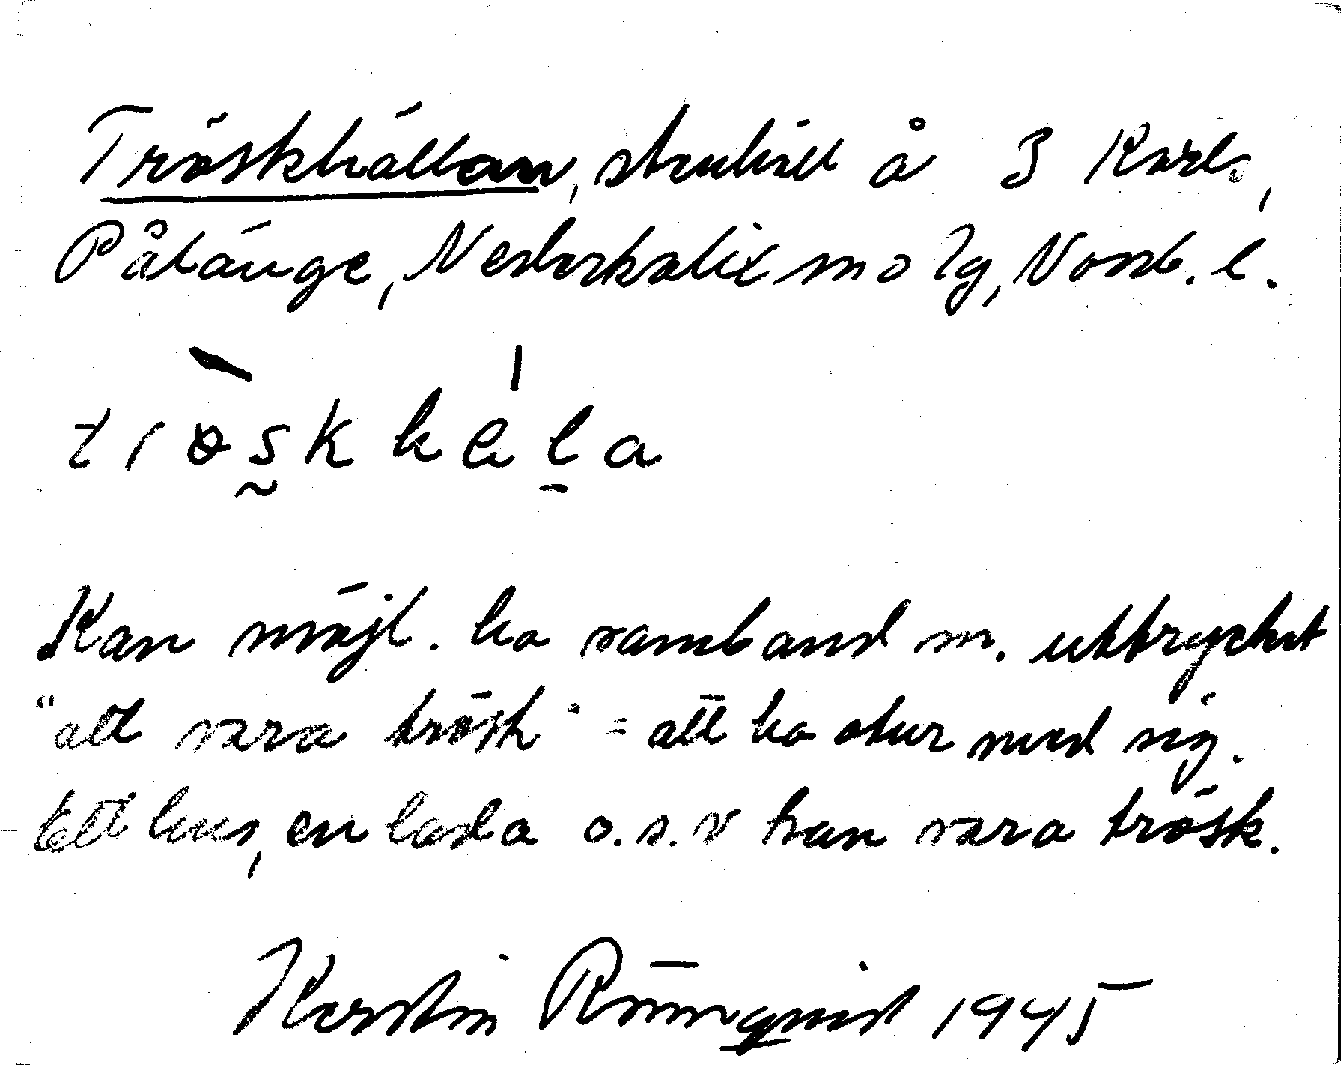 Tröskhällan, stenhäll å 3 Karls,
Pålänge, Nederkalix sn o lg, Norrb. l.
trøskhäla
Kan möjl. ha samband m. uttrycket
"att vara trösk" = att ha otur med sig.
Ett hus, en lada o.s.v kan vara trösk.
Kerstin Rönnqvist 1945